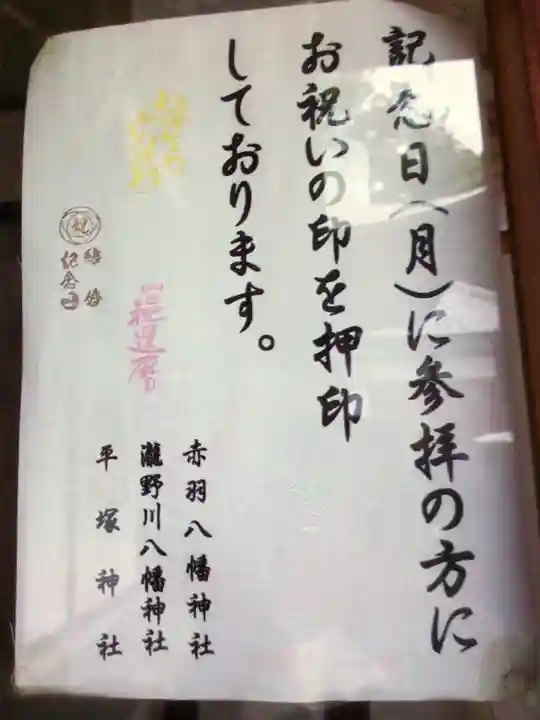 記念日(月)に参拝の方に
お祝いの印を押印
しております。
祝
結婚
記念日
祝還暦
赤羽八幡神社
瀧野川八幡神社
平塚神社